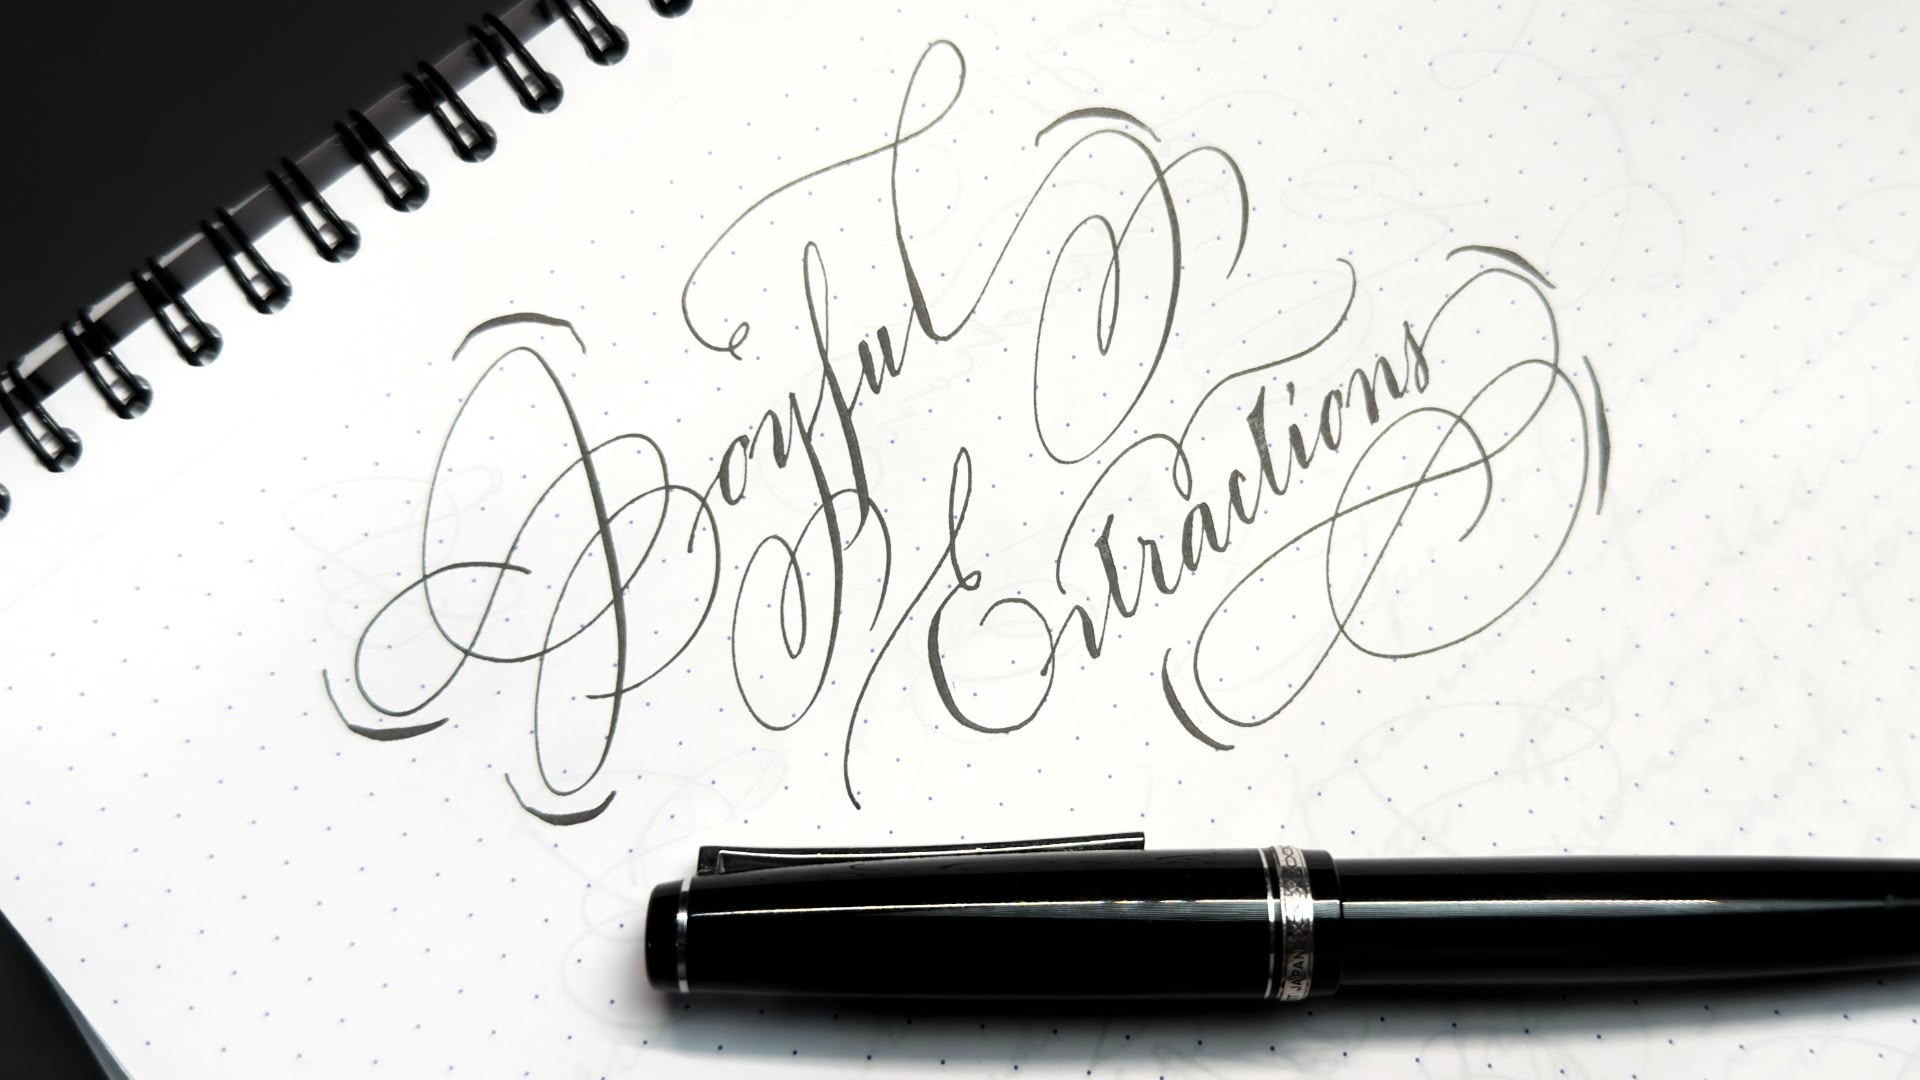 Joyful
Extractions
JAPAN